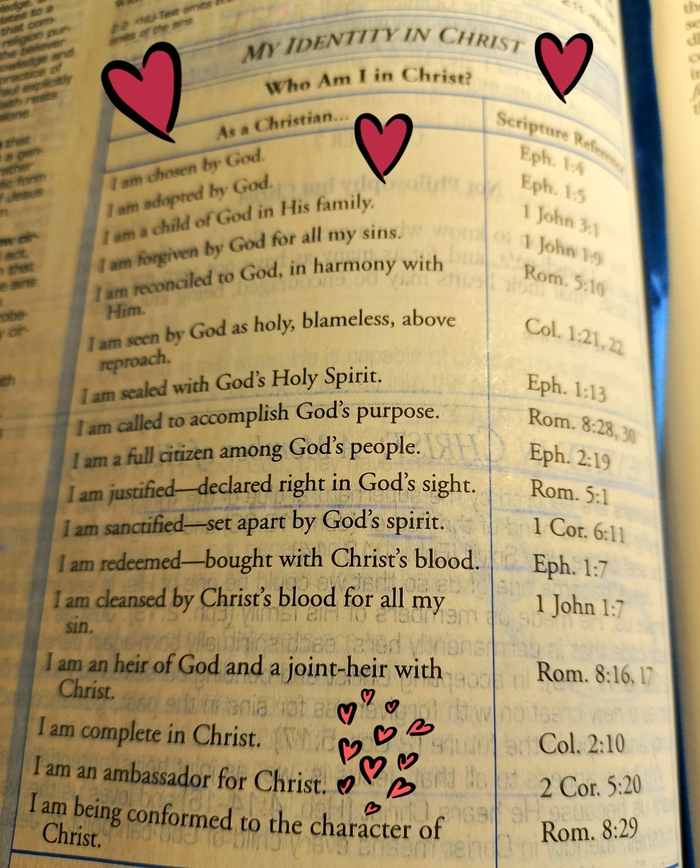 MY IDENTITY IN CHRIST
Who Am I in Christ?
As a Christian... Scripture Reference
I am chosen by God. Eph. 1:4
I am adopted by God. Eph. 1:5
I am a child of God in His family. 1 John 3:1
I am forgiven by God for all my sins. 1 John 1:9
I am reconciled to God, in harmony with Rom. 5:10
Him.
I am seen by God as holy, blameless, above Col. 1:21, 22
reproach.
I am sealed with God's Holy Spirit. Eph. 1:13
I am called to accomplish God's purpose. Rom. 8:28, 30
I am a full citizen among God's people. Eph. 2:19
I am justified—declared right in God's sight. Rom. 5:1
I am sanctified—set apart by God's spirit. 1 Cor. 6:11
I am redeemed—bought with Christ's blood. Eph. 1:7
I am cleansed by Christ's blood for all my 1 John 1:7
sin.
I am an heir of God and a joint-heir with Rom. 8:16, 17
Christ.
I am complete in Christ. Col. 2:10
I am an ambassador for Christ. 2 Cor. 5:20
I am being conformed to the character of Rom. 8:29
Christ.